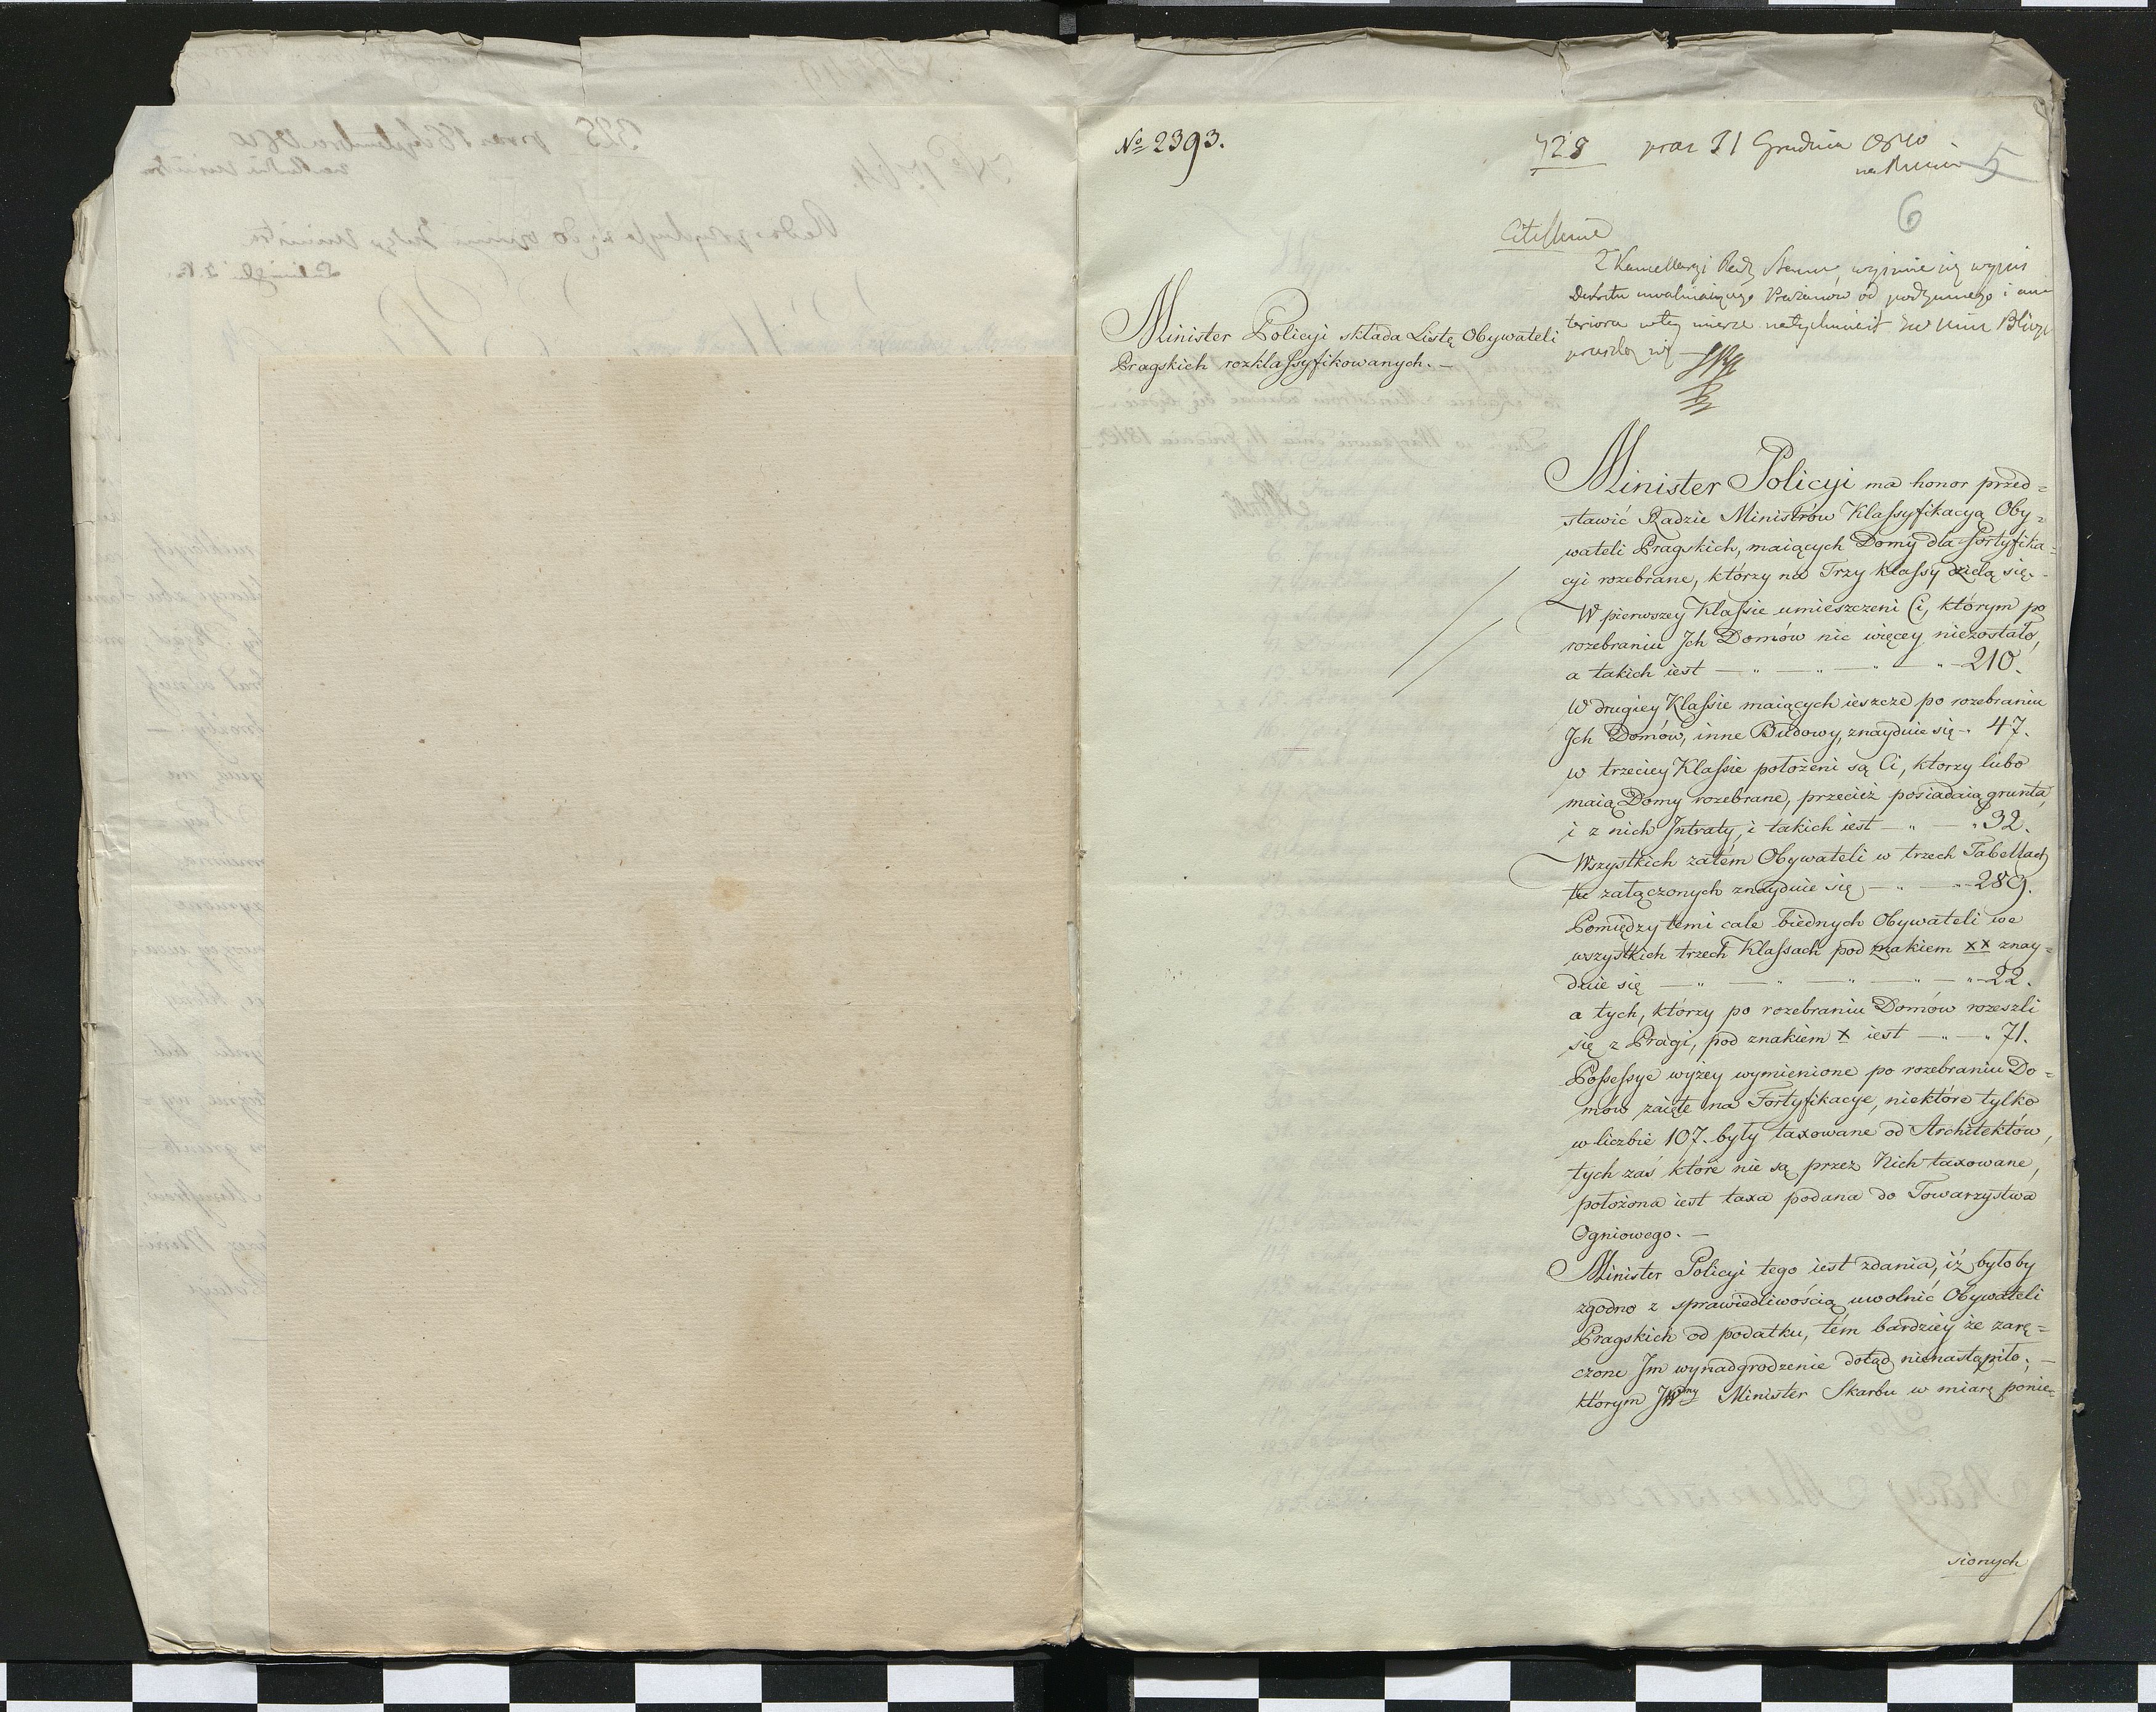 No 2393.
728 praes 11 Grudnia 1810
na Radzie
5
6
Citissime
Z Kancellaryi Rady Stanu, wyjmie się wypis
Dekretu uwalniaiącego Pražanów od podymnego i
w tey mierze natychmiast
Minister Policyi składa Listę Obywateli
Pragskich rozklassyfikowanych. —
Minister Policyi ma honor przed=
stawić Radzie Ministrów Klassyfikacyą Oby=
wateli Pragskich, maiących Domy dla Fortyfika=
cyi rozebrane, którzy na Trzy klassy dzielą się. -
W pierwszey Klassie umieszczeni Ci, którym po
rozebraniu Ich Domów nic więcey niezostało,
a takich iest — " — " — " — " — 210.
W drugiey Klassie maiących ieszcze po rozebraniu
Ich Domów, inne Budowy, znayduie się -. 47.
w trzeciey Klassie położeni są Ci, ktorzy lubo
maią Domy rozebrane, przecież posiadaią grunta,
i z nich Intraty, i takich iest — " — " 32.
Wszystkich zatém Obywateli w trzech Tabellach
tu załączonych znayduie się — " — " — 289.
Pomiędzy temi cale biednych Obywateli we
wszystkich trzech Klassach pod znakiem xx znay=
duie się — " — " — " — " — " — 22.
a tych, którzy po rozebraniu Domów rozeszli
się z Pragi, pod znakiem x iest — " — " 71.
Possessye wyżey wymienione po rozebraniu Do=
mów zaięte na Fortyfikacye, niektóre tylko
w liczbie 107. były taxowane od Architektów,
tych zaś które nie są przez Nich taxowane,
położona iest taxa podana do Towarzystwa
Ogniowego. —
Minister Policyi tego iest zdania, iż byłoby
zgodno z sprawiedliwością uwolnić Obywateli
Pragskich od podatku, tém bardziey że zarę=
czone Im wynadgrodzenie dotąd nienastąpiło; —
którym JWny Minister Skarbu w miarę ponie=
sionych